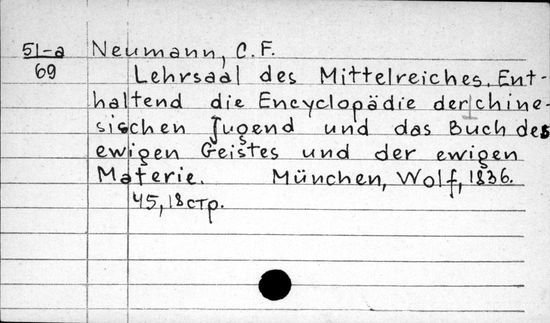 51-a Neumann, C.F.
69
Lehrsaal des Mittelreiches. Ent-
haltend die Encyclopädie der chine-
sischen Jugend und das Buch des
ewigen Geistes und der ewigen
Materie. München, Wolf, 1836.
45, 18 стр.